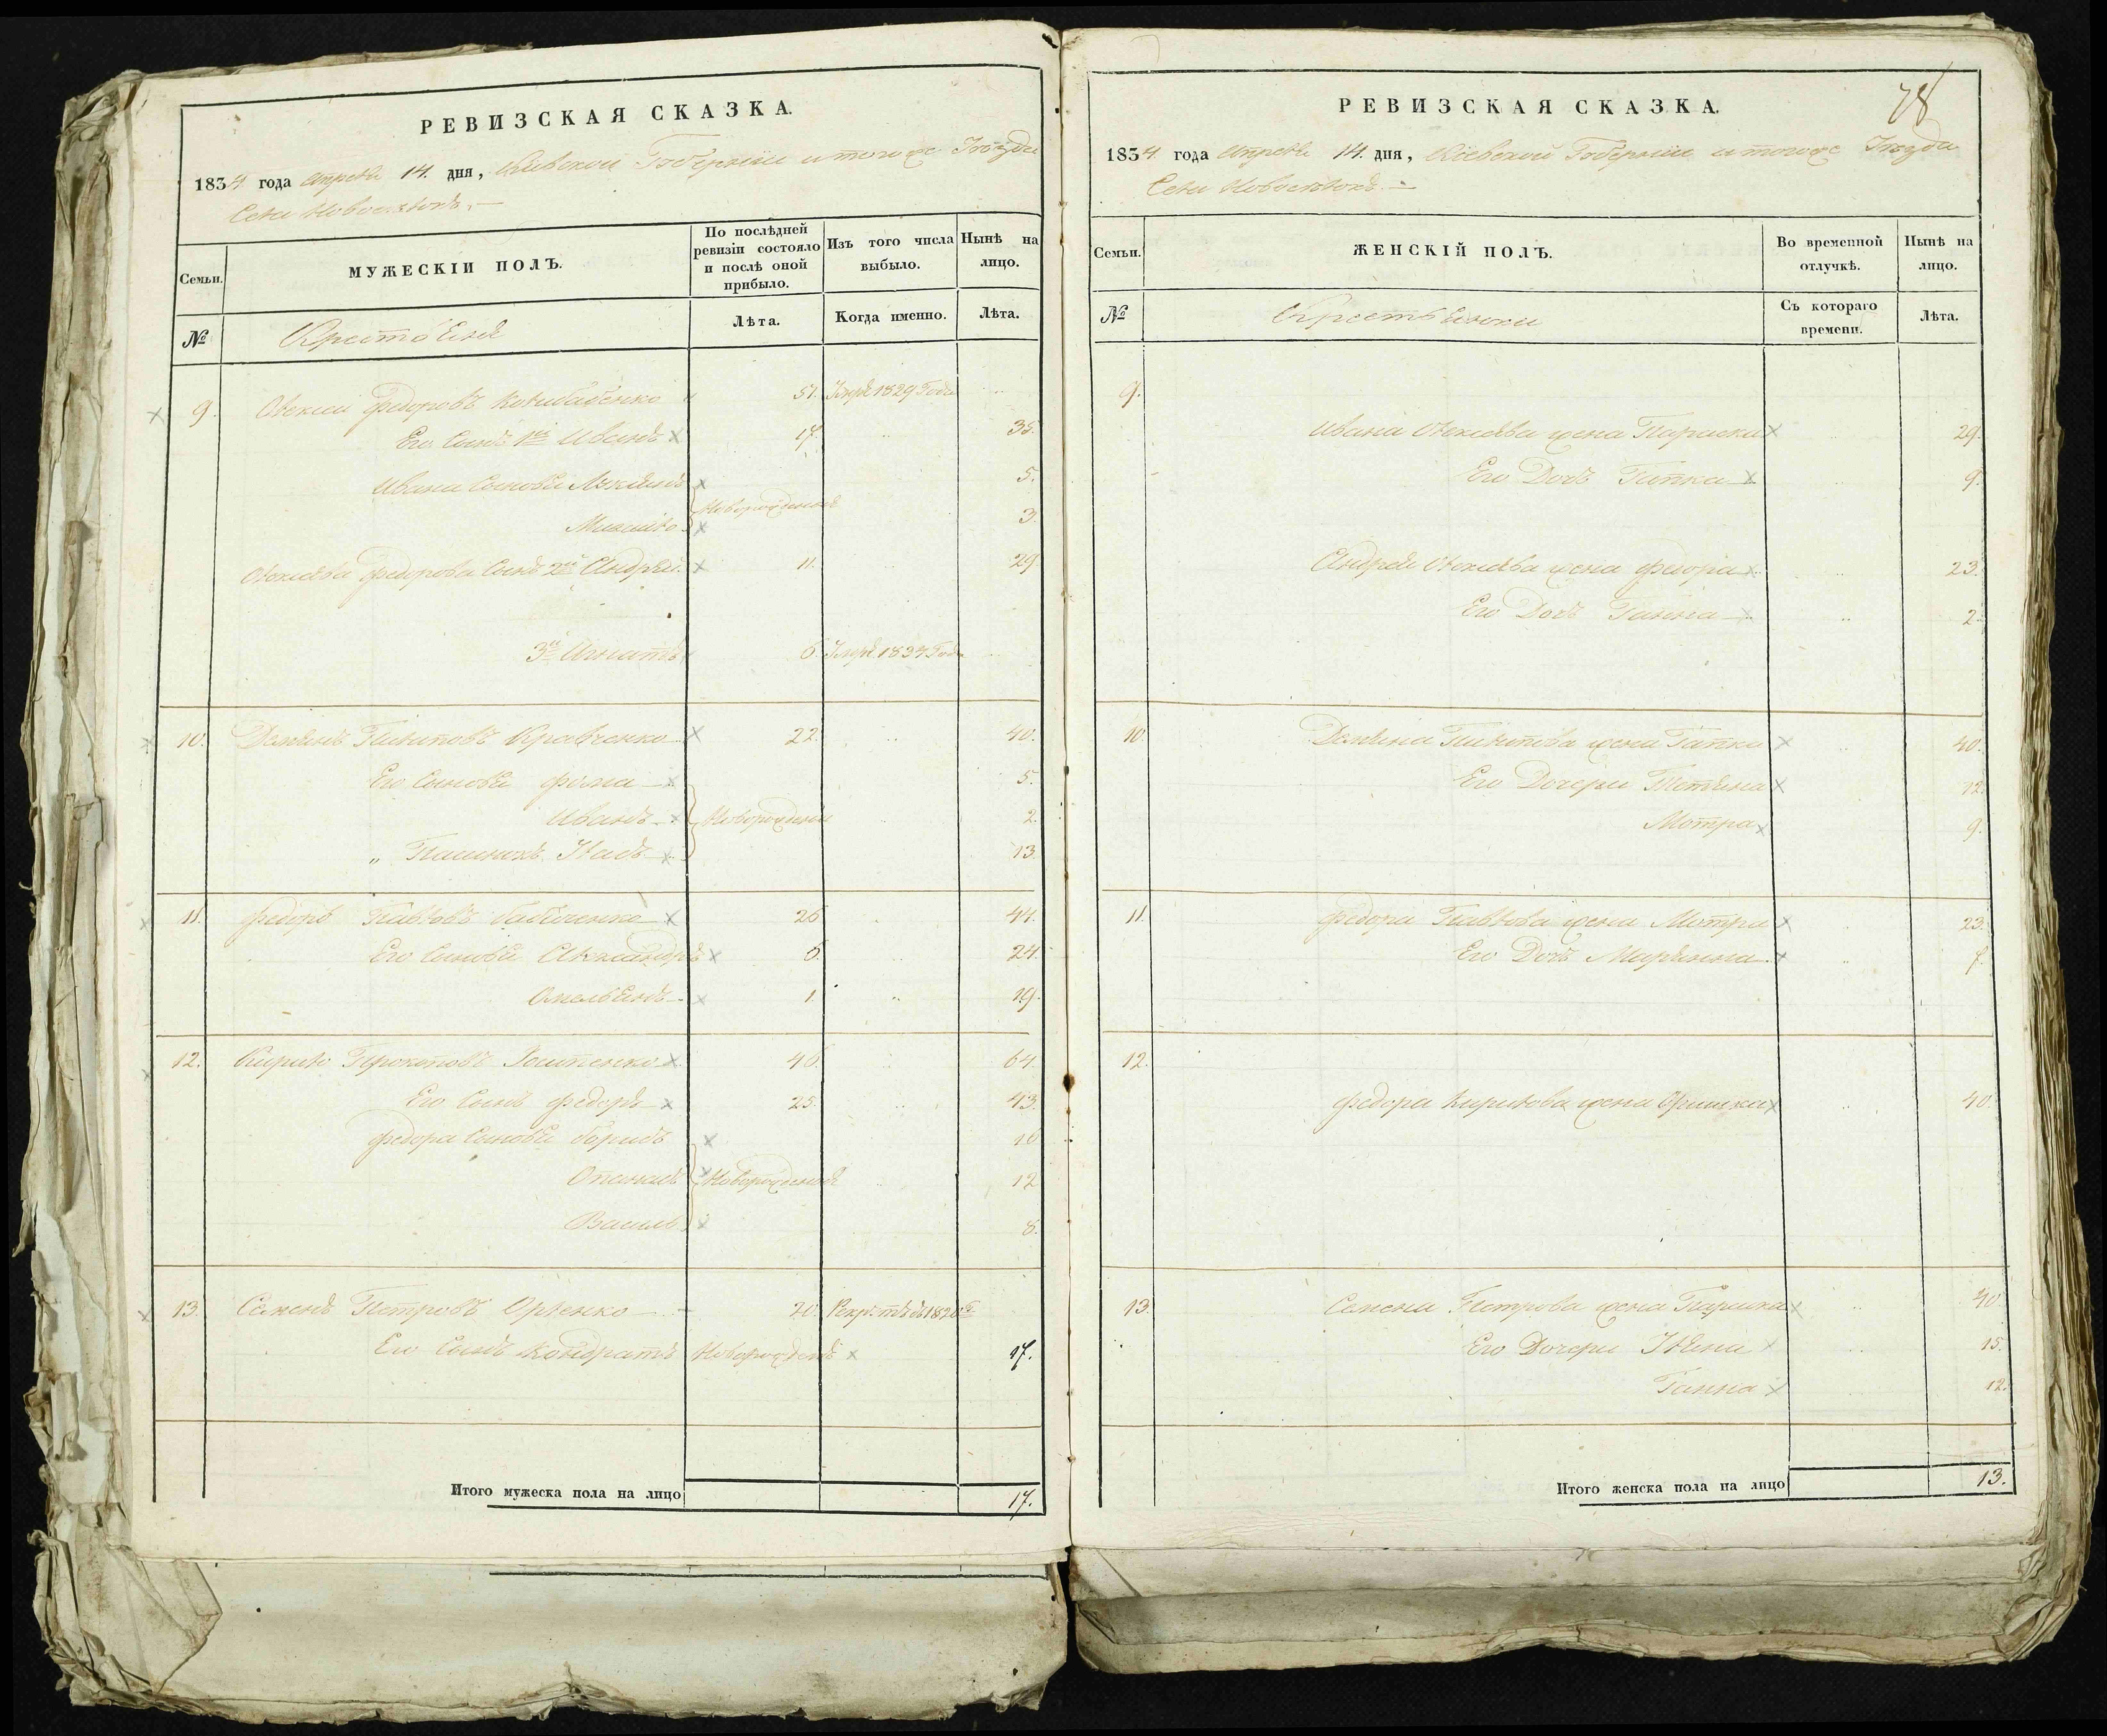 РЕВИЗСКАЯ СКАЗКА.
1834 года Апреля 14. дня, Киевской Губернии и того же Уѣзда
Села Новоселокъ. —
Семьи.
МУЖЕСКІЙ ПОЛЪ.
По послѣдней ревизіи состояло и послѣ оной прибыло.
Изъ того числа выбыло.
Нынѣ на лицо.
№
Крестьяне
Лѣта.
Когда именно.
Лѣта.
9. Федоровъ 51. Умре 1829 Года
Его Сынъ 1й Иванъ 17. 35.
Ивана Сыновья 5.
Новорожденные
3.
Федорова Сынъ 2й Андрей 11. 29
3й Игнатъ 6. Умре 1834 Года
10. Демянъ Пилиповъ Кравченко 22. 40.
Его Сыновья Фома 5.
Иванъ Новорожденные 2.
„ Пасынокъ 13.
11. Федоръ Павловъ 26 44.
Его Сыновья Александръ 6 24.
Омельянъ 1. 19.
12. Кирило Прокоповъ 46. 64.
Его Сынъ Федоръ 25. 43.
Федора Сыновья 16
Опанасъ Новорожденные 12
Василь 8.
13. Семенъ Петровъ 20.
Его Сынъ Кондратъ Новорожденъ 17.
Итого мужеска пола на лицо 17.
78
РЕВИЗСКАЯ СКАЗКА.
1834 года Апреля 14. дня, Киевской Губернии и того же Уѣзда
Села Новоселокъ. —
Семьи.
ЖЕНСКІЙ ПОЛЪ.
Во временной отлучкѣ.
Нынѣ на лицо.
№
Крестьянки
Съ котораго времени.
Лѣта.
9.
Ивана жена Параска 29.
Его Дочь Гапка 9.
Андрея жена Федора 23.
Его Дочь Ганна 2.
10. Демяна Пилипова жена Гапка 40.
Его Дочери Тетяна 12.
Мотра 9.
11. Федора Павлова жена Мотра 23.
Его Дочь Марянна
12.
Федора Кирилова жена Оришка 40.
13. Семена Петрова жена Параска 40
Его Дочери Улена 15.
Ганна 12.
Итого женска пола на лицо 13.